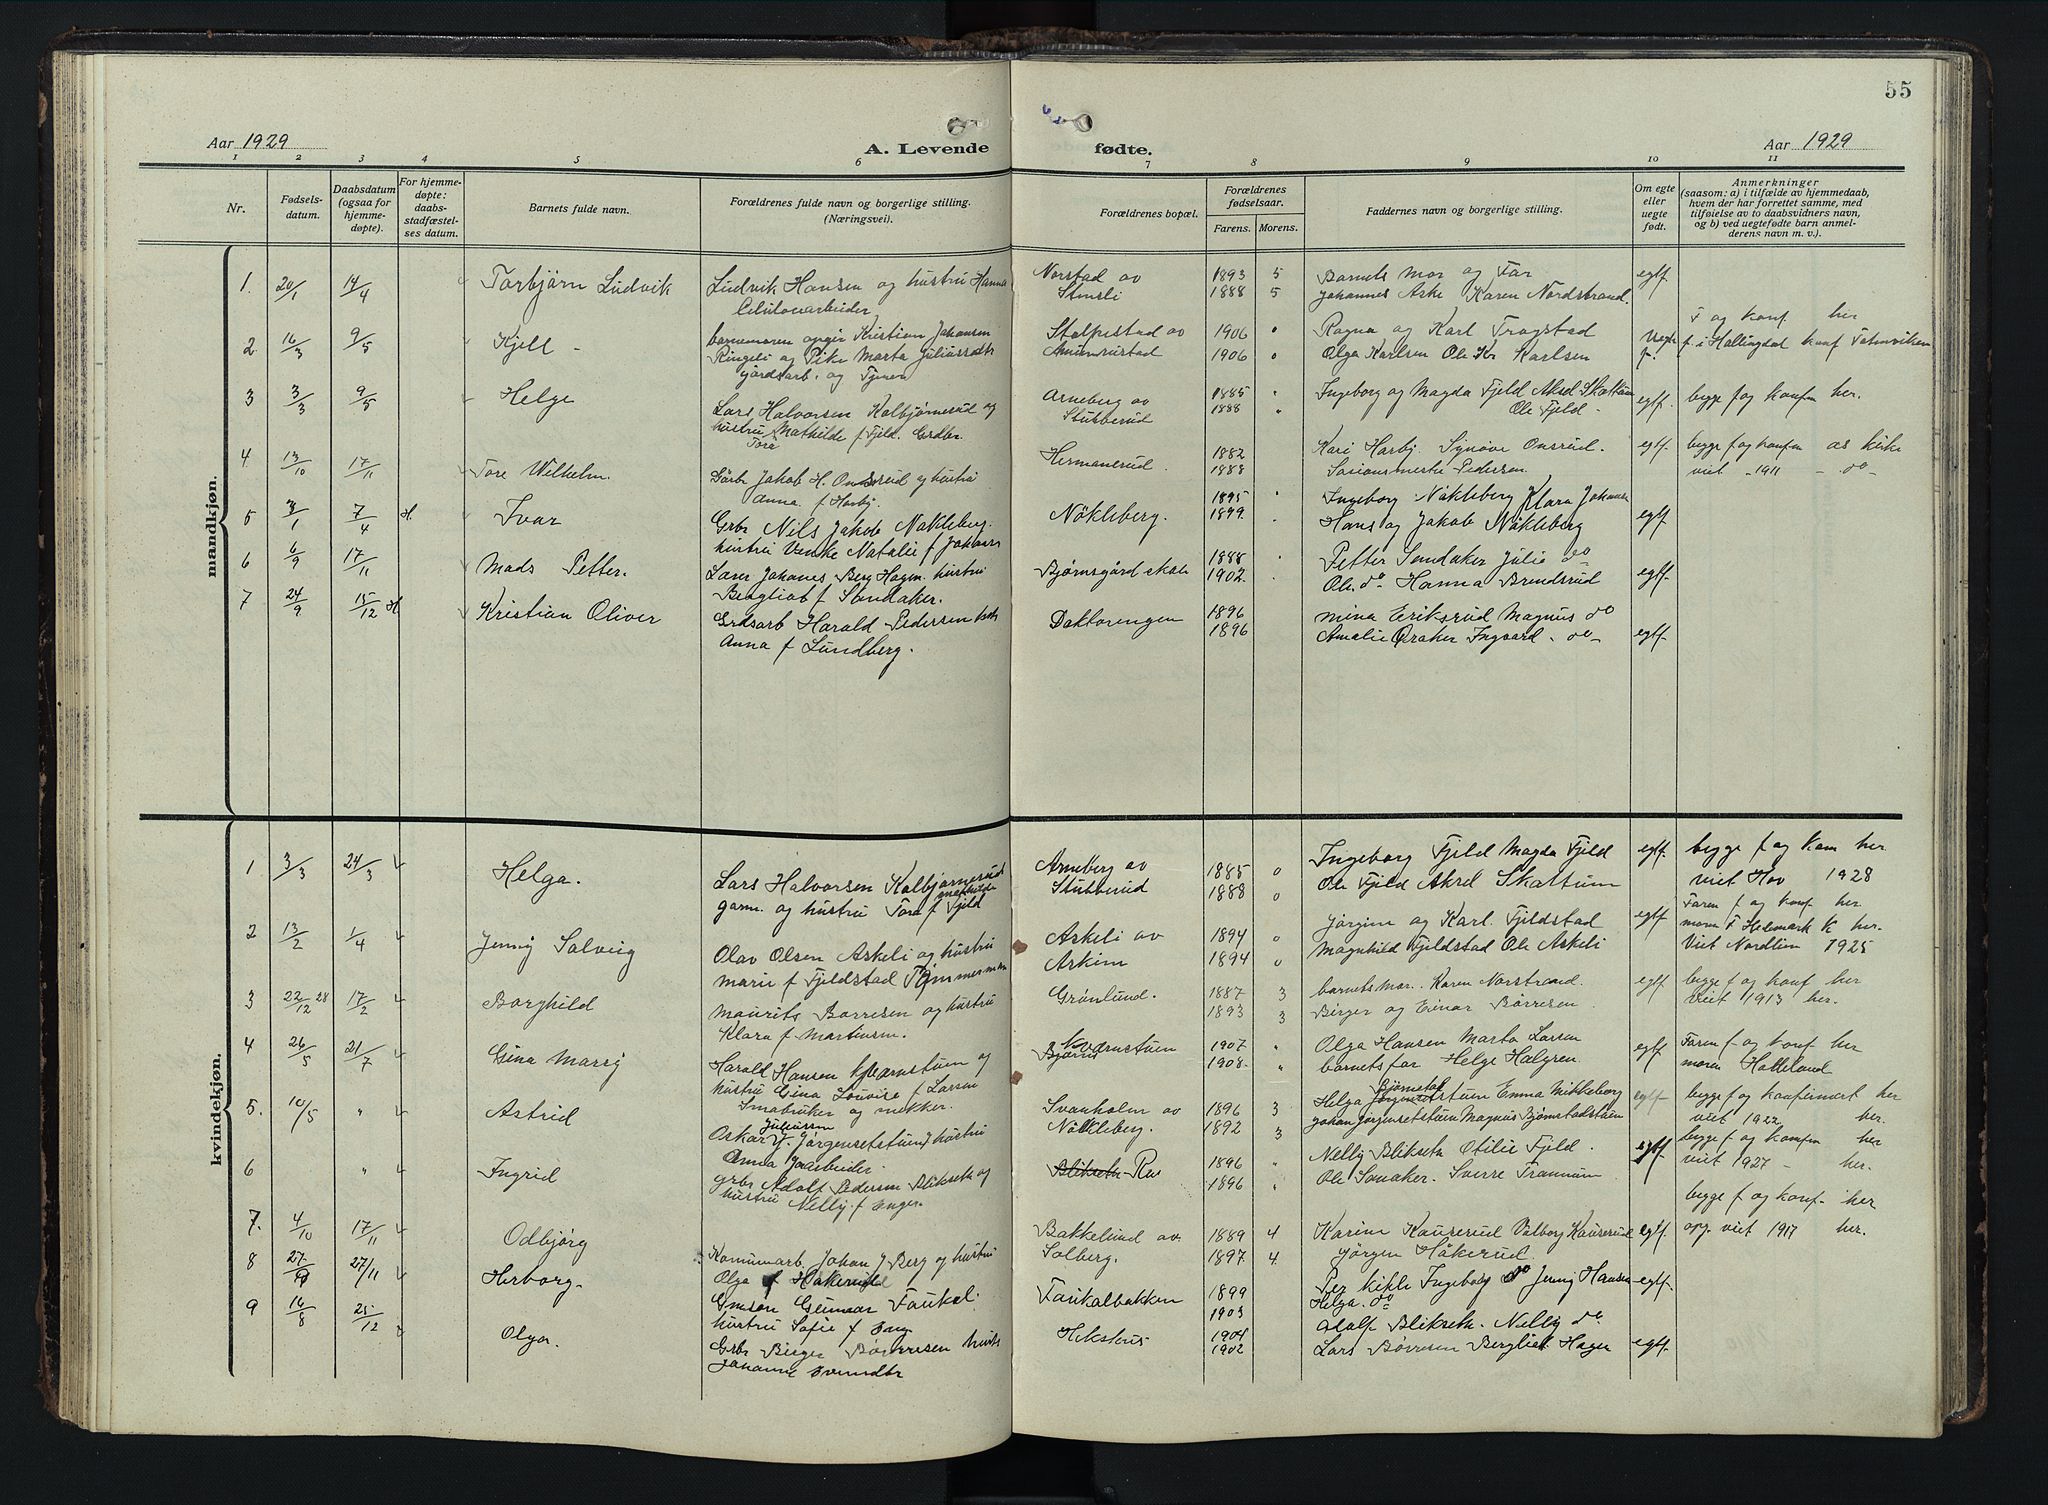 55
Aar 1929
A. Levende
fødte.
Aar 1929
1 2 3 4 5 6 7 8 9 10 11
Nr.
Fødselsdatum.
Daabsdatum (ogsaa for hjemmedøpte).
For hjemmedøpte: daabsstadfæstelses datum.
Barnets fulde navn.
Forældrenes fulde navn og borgerlige stilling. (Næringsvei).
Forældrenes bopæl.
Forældrenes fødselsaar.
Farens. Morens.
Faddernes navn og borgerlige stilling.
Om egte eller uegte født.
Anmerkninger
(saasom: a) i tilfælde av hjemmedaab, hvem der har forrettet samme, med tilføielse av to daabsvidners navn, og b) ved uegtefødte barn anmelderens navn m. v.).
mandkjøn.
1. 20/1 14/4 Torbjørn Ludvik
Ludvik Hansen og hustru Hanna
Norstad av
Stensli
1893 5
1888 5
Barnets mor og Far
Johannes Aske Karen Nordstrand.
egtf
2 16/3 9/5 Kjell -
barnemoren opgir Kristian Johansen
Ringeli og Pike Marta
gårdsarb. og Tjener
Stolpestad av
Amundrustad
1906 "
1906 "
Ragna og Karl Trogstad
Olga Karlsen Ole Kr Karlsen
F og konf her
f i Hallingdal konf
3 3/3 9/5 Helge
Lars Halvorsen Kolbjørnsrud og
hustru Mathilde f Fjeld. Grdbr.
Tora
Arneberg av
Stubberud
1885 "
1888 "
Ingeborg og Magda Fjeld Aksel Skattum
Ole Fjeld -
egtf. begge f og konfm her.
4 13/10 17/11 Tore Wilhelm.
Gårbr Jakob H. Onsrud og hustru
Anna f Harbj.
Hermanerud.
1882
1888
Kari Harbj. Synøve Onsrud.
Pedersen.
egtf. begge f og konfm as kirke
viet - 1911 - do
5 3/1 7/4 H. Ivar
Grbr Nils Jakob Nøkleberg.
hustru Natalie f Johans
Nökleberg.
1895 "
1899. "
Ingeborg Nökleberg Klara Johansen
Hans og Jakob Nökleberg
egtf
6 6/9 17/11 Mads Petter.
Johanes Berg Hagen hustru
Bergliot f Sandaker.
Bjørnsgård skole
1888 "
1902. "
Petter Sandaker Julie do
Ole do Hanna Brendsrud
egtf.
7 24/9 15/12 H Kristian Oliver
Grdsarb Harald Pedersen
Anna f Lundberg.
Doktorengen
1896
1896
Mina Eriksrud Magnus do
Amalie Ingvard - do -
egtf.
kvindekjøn.
1 3/3 24/3 Helga.
Lars Halvorsen Kolbjørnsrud
garm. og hustru Tora Mathilde f Fjeld
Arneberg av
Stubberud
1885 0
1888 0
Ingeborg Fjeld Magda Fjeld
Ole Fjeld Aksel Skattum
egtf. begge f og kom her
viet Hov 1928
2 13/2 1/4 Jenny Solveig
Olav Olsen Askeli og hustru
Marie f Fjeldstad Tømmermann
Askeli av
Askim
1894 0
1894 0
Jørgine og Karl. Fjeldstad
Magnhild Fjeldstad Ole Askeli
egtf Faren f og konf. her.
moren f Hedmark K her.
Viet Nordlien 1925
3 22/12 28 17/2 Borghild
Maurits Børresen og hustru
Klara f Martinsen.
Grønlund.
1887 3
1893 3
barnets mor. Karen Norstrand.
Birger og Einar Børresen
egtf begge f og konf her
viet 1913 her.
4 26/5 21/7 Gina Marry
Harald Hansen Kværnstuen og
hustru Gina Lovise f Larsen
Småbruker og snekker.
1907 "
1908. "
Olga Hansen Marta Larsen
barnets far Helge Halgren.
egtf Faren f og konf her
moren Hølleland
5. 10/5 " Astrid
Oskar J. Juliussen Jørgensetstuen hustru
Anna Jaarbeider.
Svanholm av
Nökleberg.
1896 3
1892 3
Helga Bjørnstadstuen Emma Mikkeborg
Johan Jørgensetstuen Magnus Bjørnstadstuen
egtf begge f og konfirmert her
viet 1922 her.
6 " Ingrid
grbr Adolf Pedersen Blikseth og
hustru Nelly f Enger
Blikseth Rev
1896 "
1896 "
Nelly Blikseth Otilie Fjeld.
Ole Sanaker. Sverre Trannum
egtf. begge f og konfm her
viet 1927 - her.
7. 4/10 17/11 Odbjørg
Komunarb. Johan J Berg og hustru
Olga f Håkerud
Bakkelund av
Solberg.
1889 4
1897. 4
Karine Kauserud Valborg Kauserud
Jørgen Håkerud
egtf. begge f og konf. her
opg. viet 1917 her.
8 27/11 Herborg.
Gunnar Faukal
hustru Sofie f Berg
Faukalbakken
1899
1903
Ingeborg do Jenny Hansen
Helga. do
egtf.
9 16/8 25/12 Olga.
Grbr Birger Børresen hustr
Johanne Svendsr
Heksterus
1904
1902
Adolf Blikseth. Nelly do
Lars Børresen Bergliot Hagen
egtf.